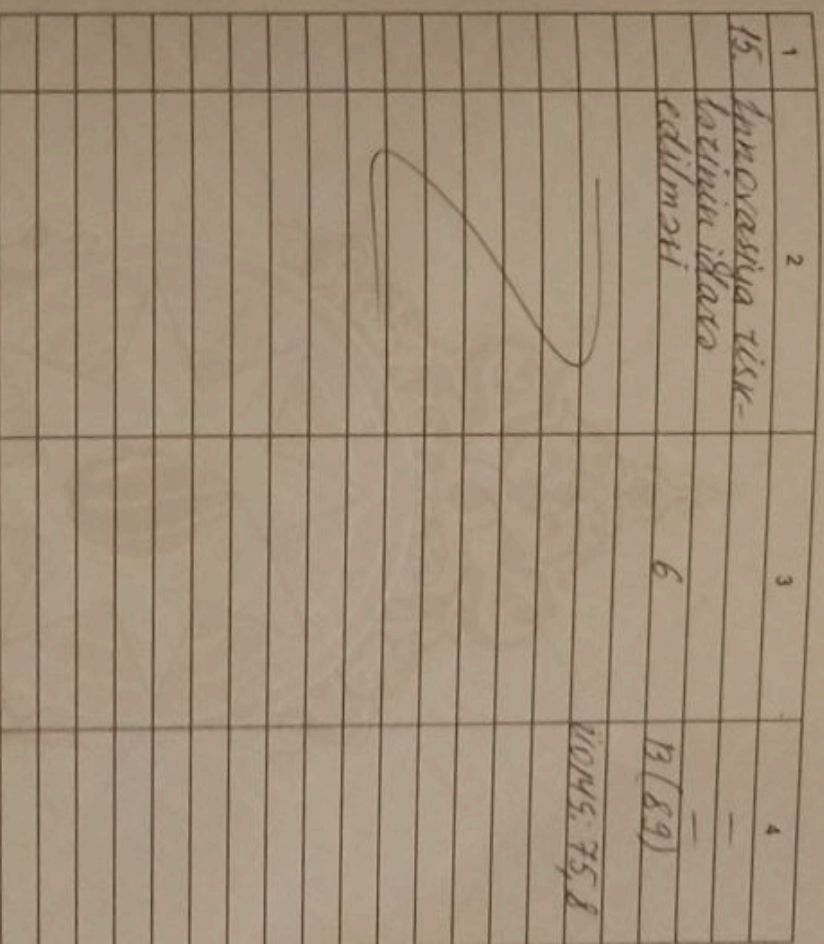 1 2 3 4
15. İnnovasiya risk- –
lərinin idarə –
edilməsi 6 B(89)
ÜOMG: 75,8